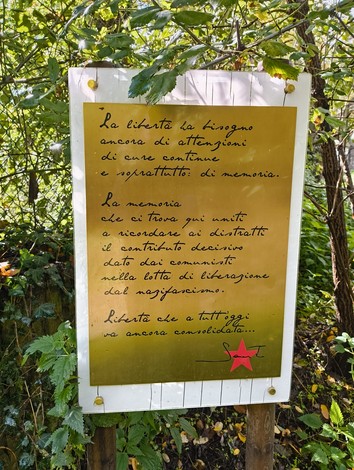 "La libertà ha bisogno
ancora di attenzioni
di cure continue
e soprattutto: di memoria.
La memoria
che ci trova qui uniti
a ricordare ai distratti
il contributo decisivo
dato dai comunisti
nella lotta di liberazione
dal nazifascismo.
Libertà che a tutt'oggi
va ancora consolidata...